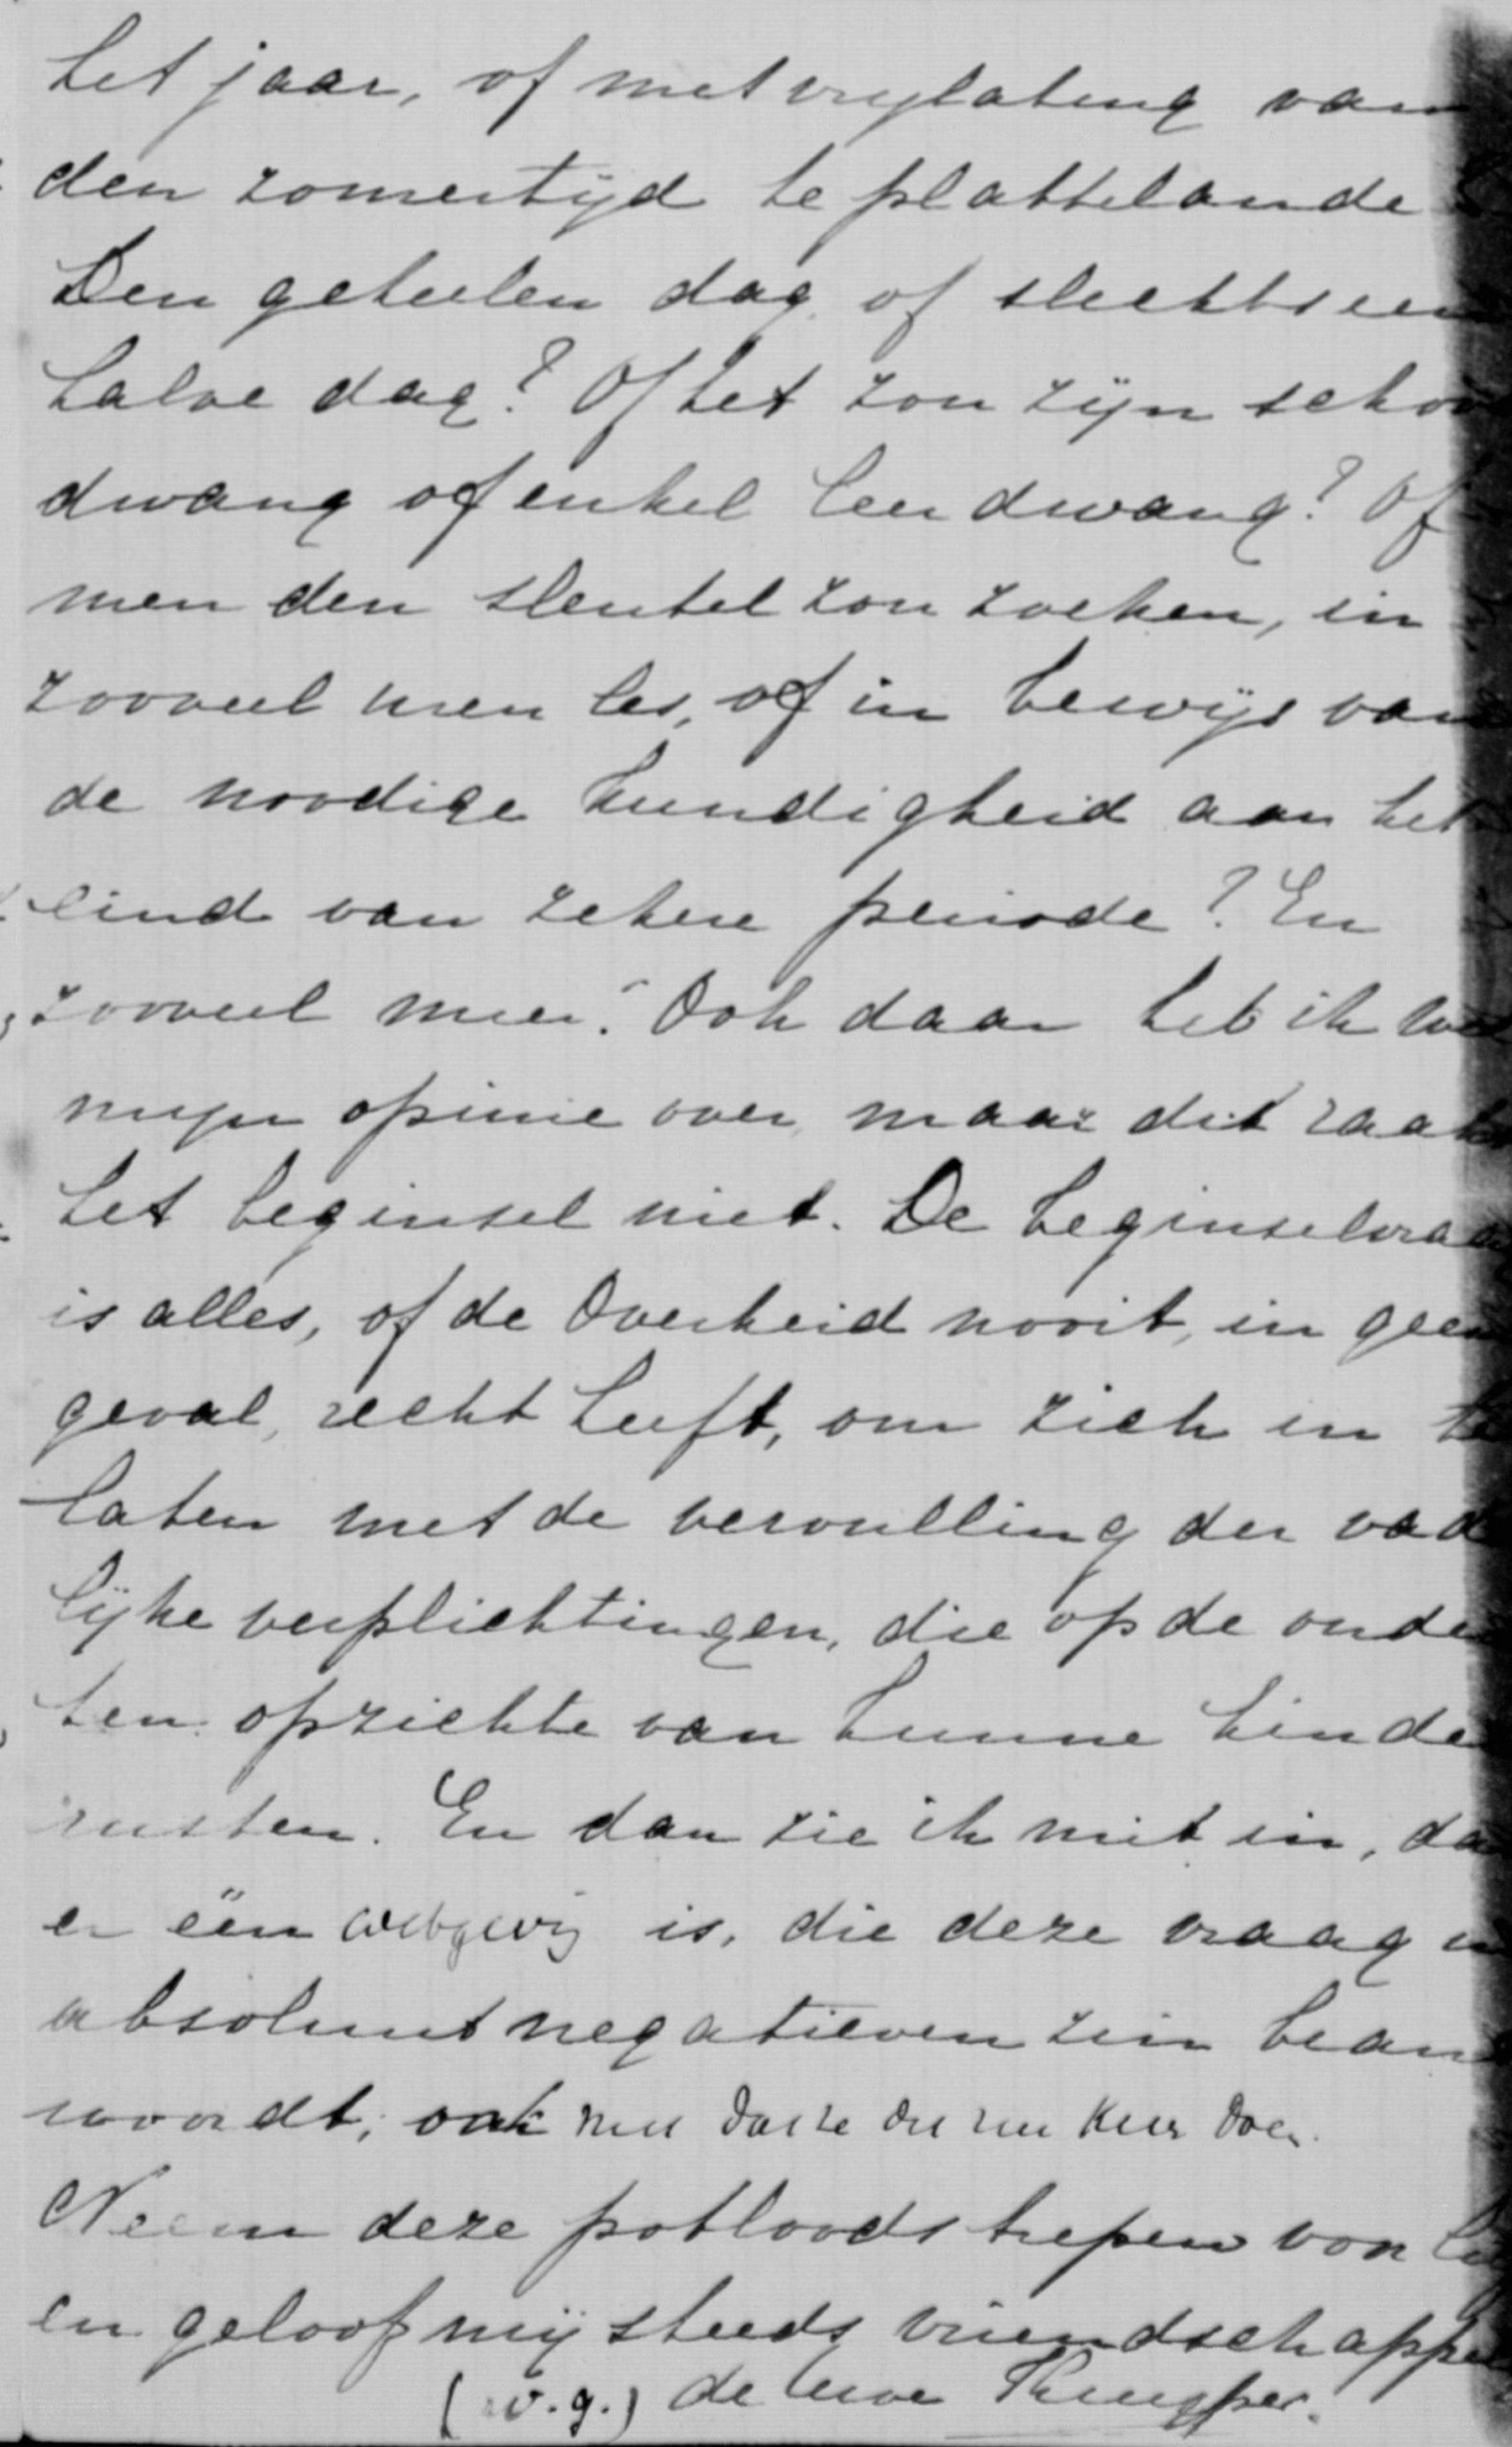 het jaar, of met vrylating van
den zomertyd te plattelande
Den geheelen dag of slechts een
halve dag? Of het zou zijn schoo
dwang of enkel leerdwang? Of
men den sleutel zou zoeken, in
zooveel uren les, of in bewijs van
de noodige kundigheid aan het
eind van zekere periode? En
zooveel meer. Ook daar heb ik
myn opinie over, maar dit raakt
het beginsel niet. De beginselvraa
is alles, of de Overheid nooit, in geen
geval, recht heeft, om zich in te
laten met de vervulling der vad
lijke verplichtingen, die op de oude
ten opzichte van hunne kinde
rusten. En dan zie ik niet in, da
er één wetgeving is, die deze vraag in
absoluut negatieven zin bean
woordt; ook niet
Neem deze potloodstrepen voor
en geloof mij steeds vriendschappel
(w.g.) de Uwe Kuyper.